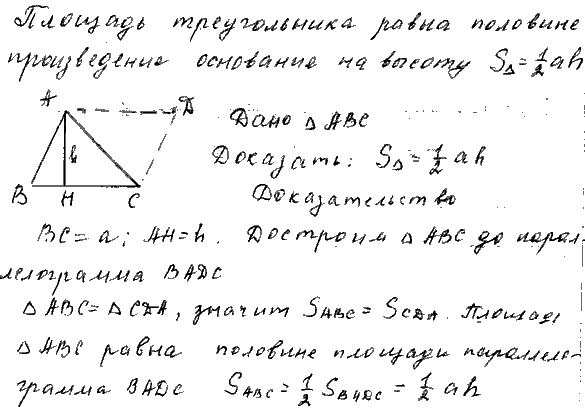 Площадь треугольника равна половине
произведение основание на высоту S△ = 1/2 ah
A D
Дано △ ABC
h
Доказать: S△ = 1/2 ah
B H C
Доказательство
BC = a; AH = h. Достроим △ ABC до парал-
лелограмма BADC
△ ABC = △ CDA, значит SABC = SCDA. Площадь
△ ABC равна половине площади параллело-
грамма BADC SABC = 1/2 SBADC = 1/2 ah